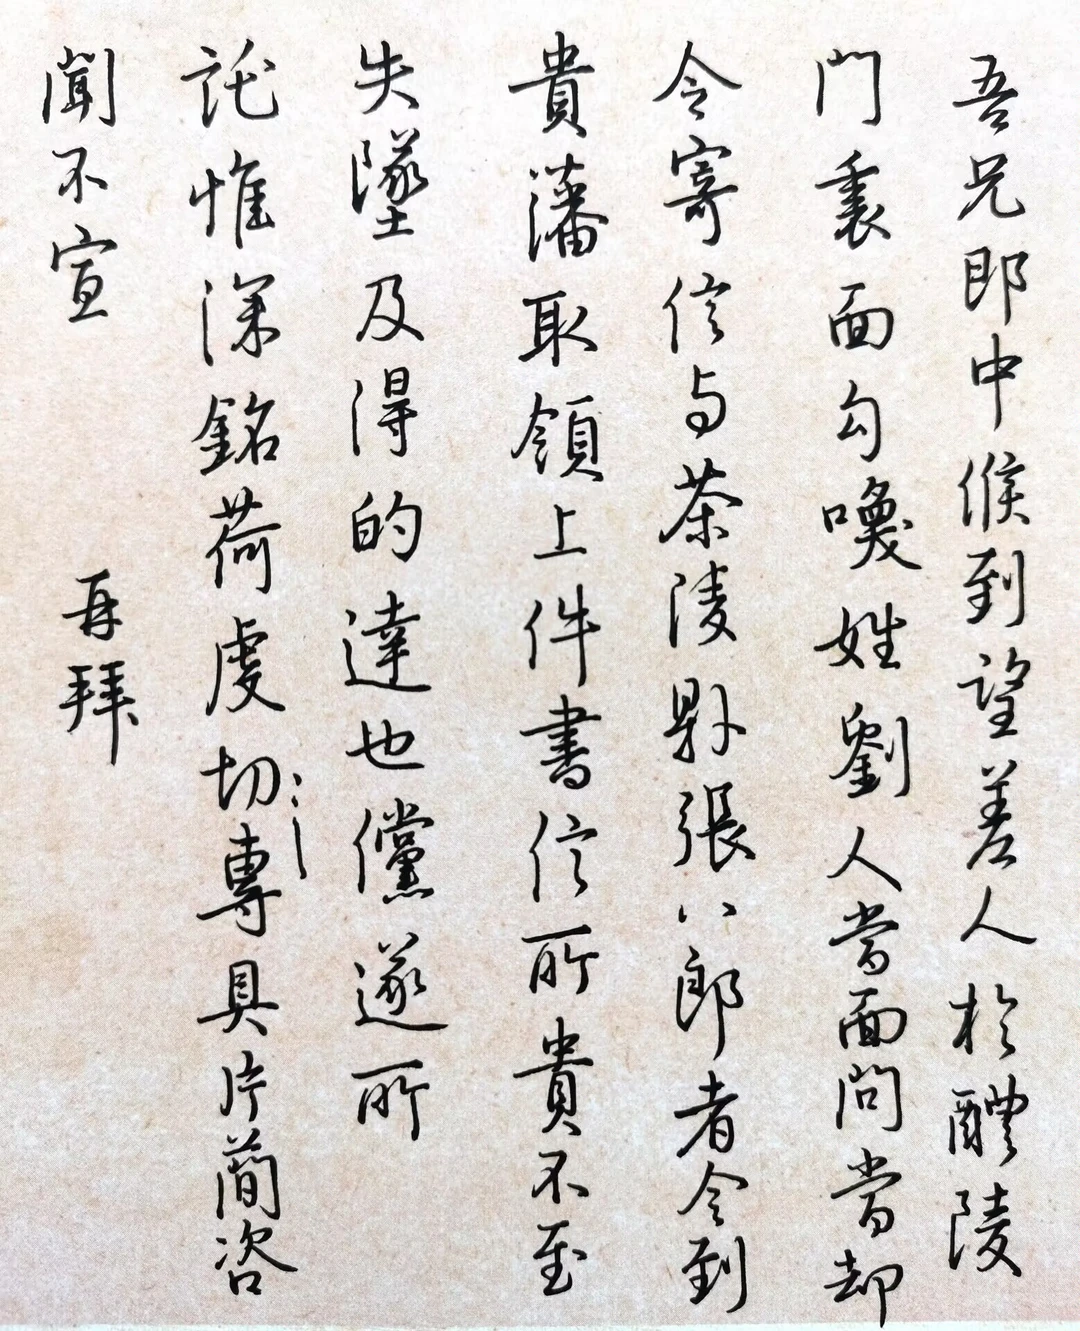 吾兄郎中候到望差人於醴陵
門裏面勾喚姓劉人當面問當却
令寄信与茶陵縣張八郎者令到
貴藩取領上件書信所貴不至
失墜及得的達也儻遂所
託惟深銘荷虔切〻專具片簡咨
聞不宣 再拜